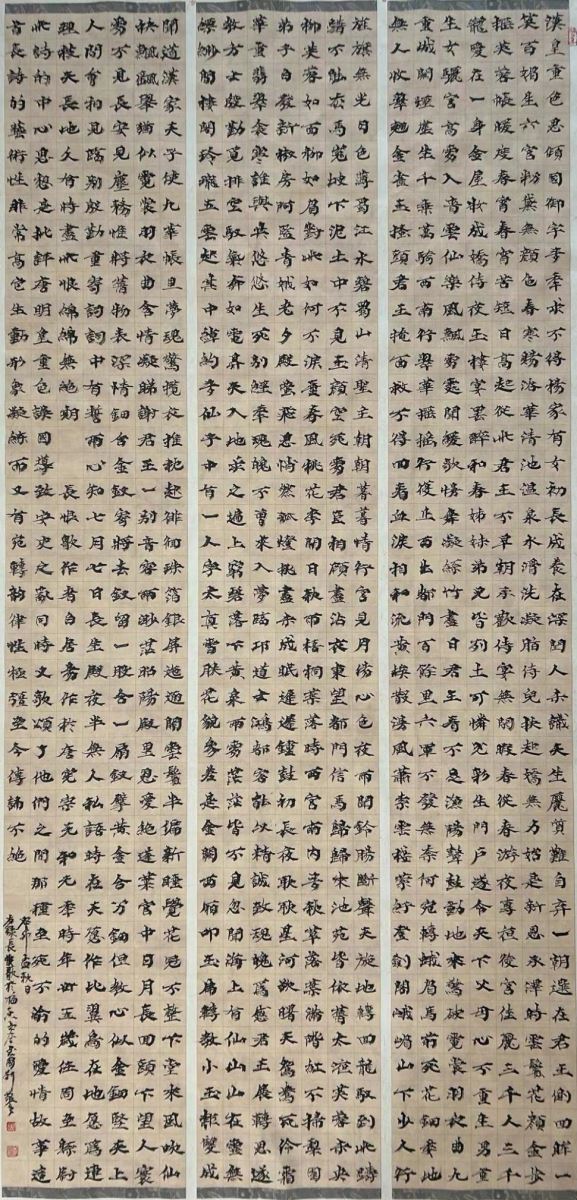 漢皇重色思傾國御宇多年求不得楊家有女初長成養在深閨人未識天生麗質難自棄一朝選在君王側回眸一
笑百媚生六宮粉黛無顏色春寒賜浴華清池溫泉水滑洗凝脂侍兒扶起嬌無力始是新恩承澤時雲鬢花顏金步
搖芙蓉帳暖度春宵春宵苦短日高起從此君王不早朝承歡侍宴無閒暇春從春游夜專夜後宮佳麗三千人三千
寵愛在一身金屋妝成嬌侍夜玉樓宴罷醉和春姊妹弟兄皆列土可憐光彩生門戶遂令天下父母心不重生男重
生女驪宮高處入青雲仙樂風飄處處聞緩歌慢舞凝絲竹盡日君王看不足漁陽鼙鼓動地來驚破霓裳羽衣曲九
重城闕煙塵生千乘萬騎西南行翠華搖搖行復止西出都門百餘里六軍不發無奈何宛轉蛾眉馬前死花鈿委地
無人收翠翹金雀玉搔頭君王掩面救不得回看血淚相和流黃埃散漫風蕭索雲棧縈紆登劍閣峨嵋山下少人行
旌旗無光日色薄蜀江水碧蜀山清聖主朝朝暮暮情行宮見月傷心色夜雨聞鈴腸斷聲天旋地轉回龍馭到此躊
躇不能去馬嵬坡下泥土中不見玉顏空死處君臣相顧盡沾衣東望都門信馬歸歸來池苑皆依舊太液芙蓉未央
柳芙蓉如面柳如眉對此如何不淚垂春風桃花李開日秋雨梧桐葉落時西宮南內多秋草落葉滿階紅不掃梨園
弟子白髮新椒房阿監青娥老夕殿螢飛思悄然孤燈挑盡未成眠遲遲鐘鼓初長夜耿耿星河欲曙天鴛鴦瓦冷霜
華重翡翠衾寒誰與共悠悠生死別經年魂魄不曾來入夢臨邛道士鴻都客能以精誠致魂魄為感君王展轉思遂
教方士殷勤覓排空馭氣奔如電昇天入地求之遍上窮碧落下黃泉兩處茫茫皆不見忽聞海上有仙山山在虛無
縹緲間樓閣玲瓏五雲起其中綽約多仙子中有一人字太真雪膚花貌參差是金闕西廂叩玉扃轉教小玉報雙成
聞道漢家天子使九華帳里夢魂驚攬衣推枕起徘徊珠箔銀屏迤邐開雲鬢半偏新睡覺花冠不整下堂來風吹仙
袂飄飄舉猶似霓裳羽衣曲含情凝睇謝君王一別音容兩渺茫昭陽殿里恩愛絕蓬萊宮中日月長回頭下望人寰
處不見長安見塵霧惟將舊物表深情鈿合金釵寄將去釵留一股合一扇釵擘黃金合分鈿但教心似金鈿堅天上
人間會相見臨別殷勤重寄詞詞中有誓兩心知七月七日長生殿夜半無人私語時在天願作比翼鳥在地願為連
理枝天長地久何時盡此恨綿綿無絕期 長恨歌作者白居易作於唐憲宗元和元年時年卅五歲任周至縣尉
此詩的中心思想是批評唐明皇重色誤國導致安史之亂同時又歌頌了他們之間那種至死不渝的愛情故事這
首長詩的藝術性非常高它生動形象凝練而又有宛轉韻律性極強至今傳誦不絕
癸卯孟秋日
右錄長恨歌於